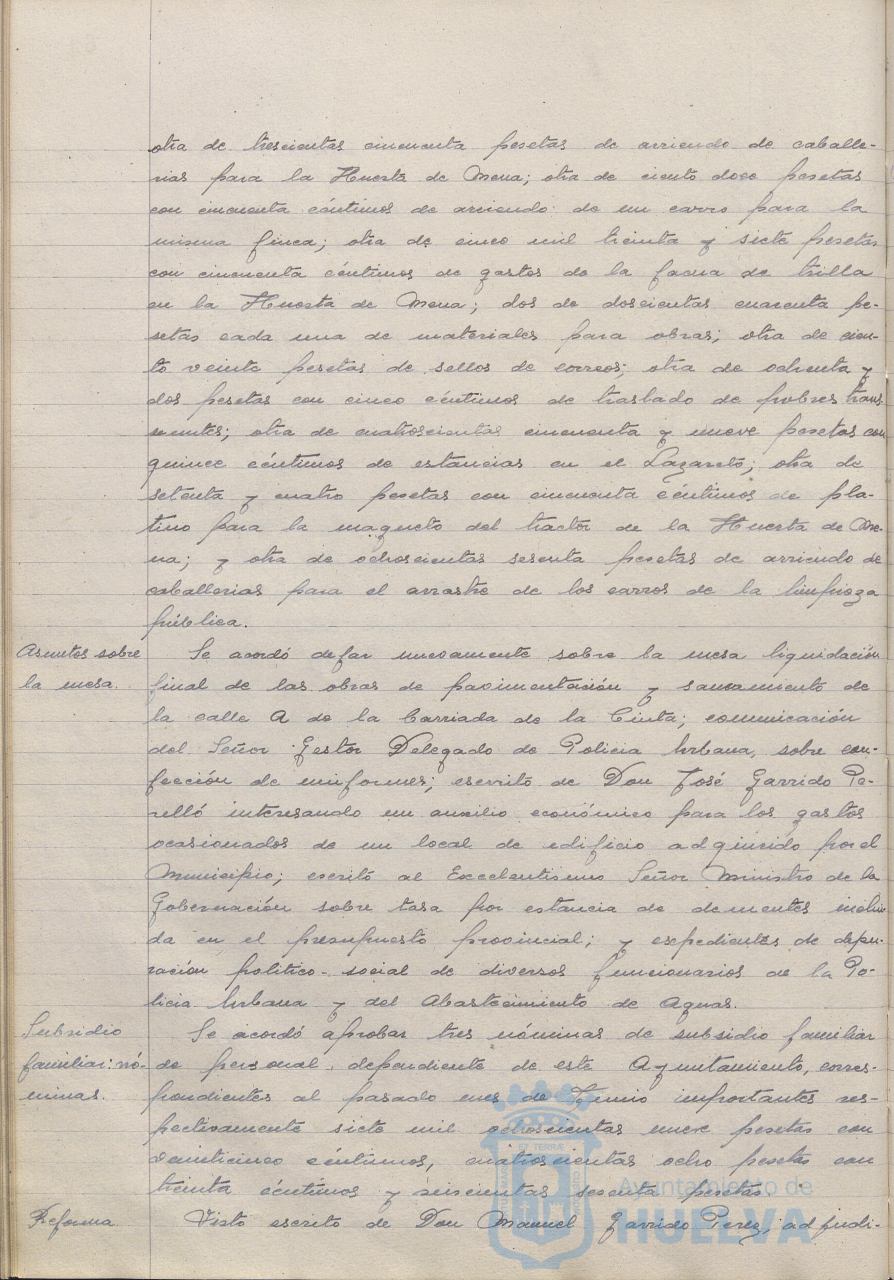 otra de trescientas cincuenta pesetas de arriendo de caballe-
rias para la Huerta de Mena; otra de ciento doce pesetas
con cincuenta céntimos de arriendo de un carro para la
misma finca; otra de cinco mil treinta y siete pesetas
con cincuenta céntimos de gastos de la faena de trilla
en la Huerta de Mena; dos de doscientas cuarenta pe-
setas cada una de materiales para obras; otra de cien-
to veinte pesetas de sellos de correos; otra de ochenta y
dos pesetas con cinco céntimos de traslado de pobres tran
seuntes; otra de cuatroscientas cincuenta y nueve pesetas con
quince céntimos de estancias en el Lazareto; otra de
setenta y cuatro pesetas con cincuenta céntimos de pla-
tino para la magneto del tractor de la Huerta de Me-
na; y otra de ochoscientas sesenta pesetas de arriendo de
caballerias para el arrastre de los carros de la limpieza
pública.
Asuntos sobre
la mesa.
Se acordó dejar nuevamente sobre la mesa liquidación
final de las obras de pavimentación y saneamiento de
la calle A de la barriada de la Cinta; comunicación
del Señor Gestor Delegado de Policia Urbana, sobre con-
fección de uniformes; escrito de Don José Garrido Pe-
relló interesando un auxilio económico para los gastos
ocasionados de un local de edificio adquirido por el
Municipio; escrito al Excelentisimo Señor Ministro de la
Gobernación sobre tasa por estancia de dementes inclui
da en el presupuesto provincial; y expedientes de depu-
ración politico-social de diversos funcionarios de la Po-
licia Urbana y del Abastecimiento de Aguas.
Subsidio
familiar: nó-
minas.
Se acordó aprobar tres nóminas de subsidio familiar
de personal dependiente de este Ayuntamiento, corres-
pondientes al pasado mes de Junio importantes res-
pectivamente siete mil ochoscientas nueve pesetas con
veinticinco céntimos, cuatroscientas ocho pesetas con
treinta céntimos y seiscientas sesenta pesetas
Reforma
Visto escrito de Don Manuel Garrido Perez, adjudi-
Ayuntamiento de
HUELVA